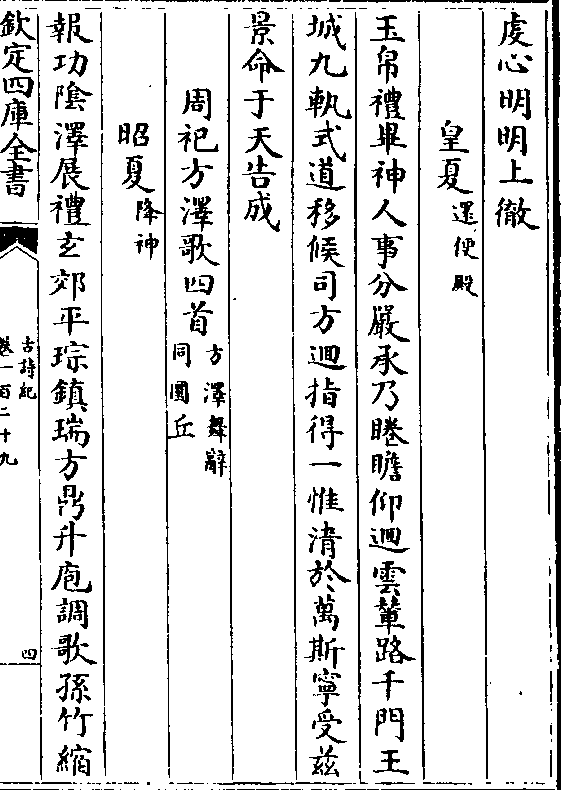 虔心明明上徹
皇夏還便殿
玉帛禮畢神人事分嚴承乃睠瞻仰迴雲輦路千門王
城九軌式道移候司方迴指得一惟清於萬斯寧受兹
景命于天告成
周祀方澤歌四首方澤舞辭同圜丘
昭夏降神
報功隂澤展禮玄郊平琮鎮瑞方鼎升庖調歌孫竹縮
欽定四庫全書
古詩紀
卷一百二十九
四